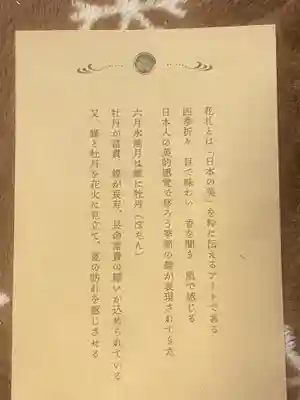 花札とは「日本の美」を粋に伝えるアートである
四季折々 目で味わい 香を聞き 肌で感じる
日本人の美的感覚で移ろう季節の趣が表現されてきた
六月水無月は蝶に牡丹(ぼたん)
牡丹が富貴、蝶が長寿、長命富貴の願いが込められている
又、蝶と牡丹を花火に見立て、夏の訪れを感じさせる